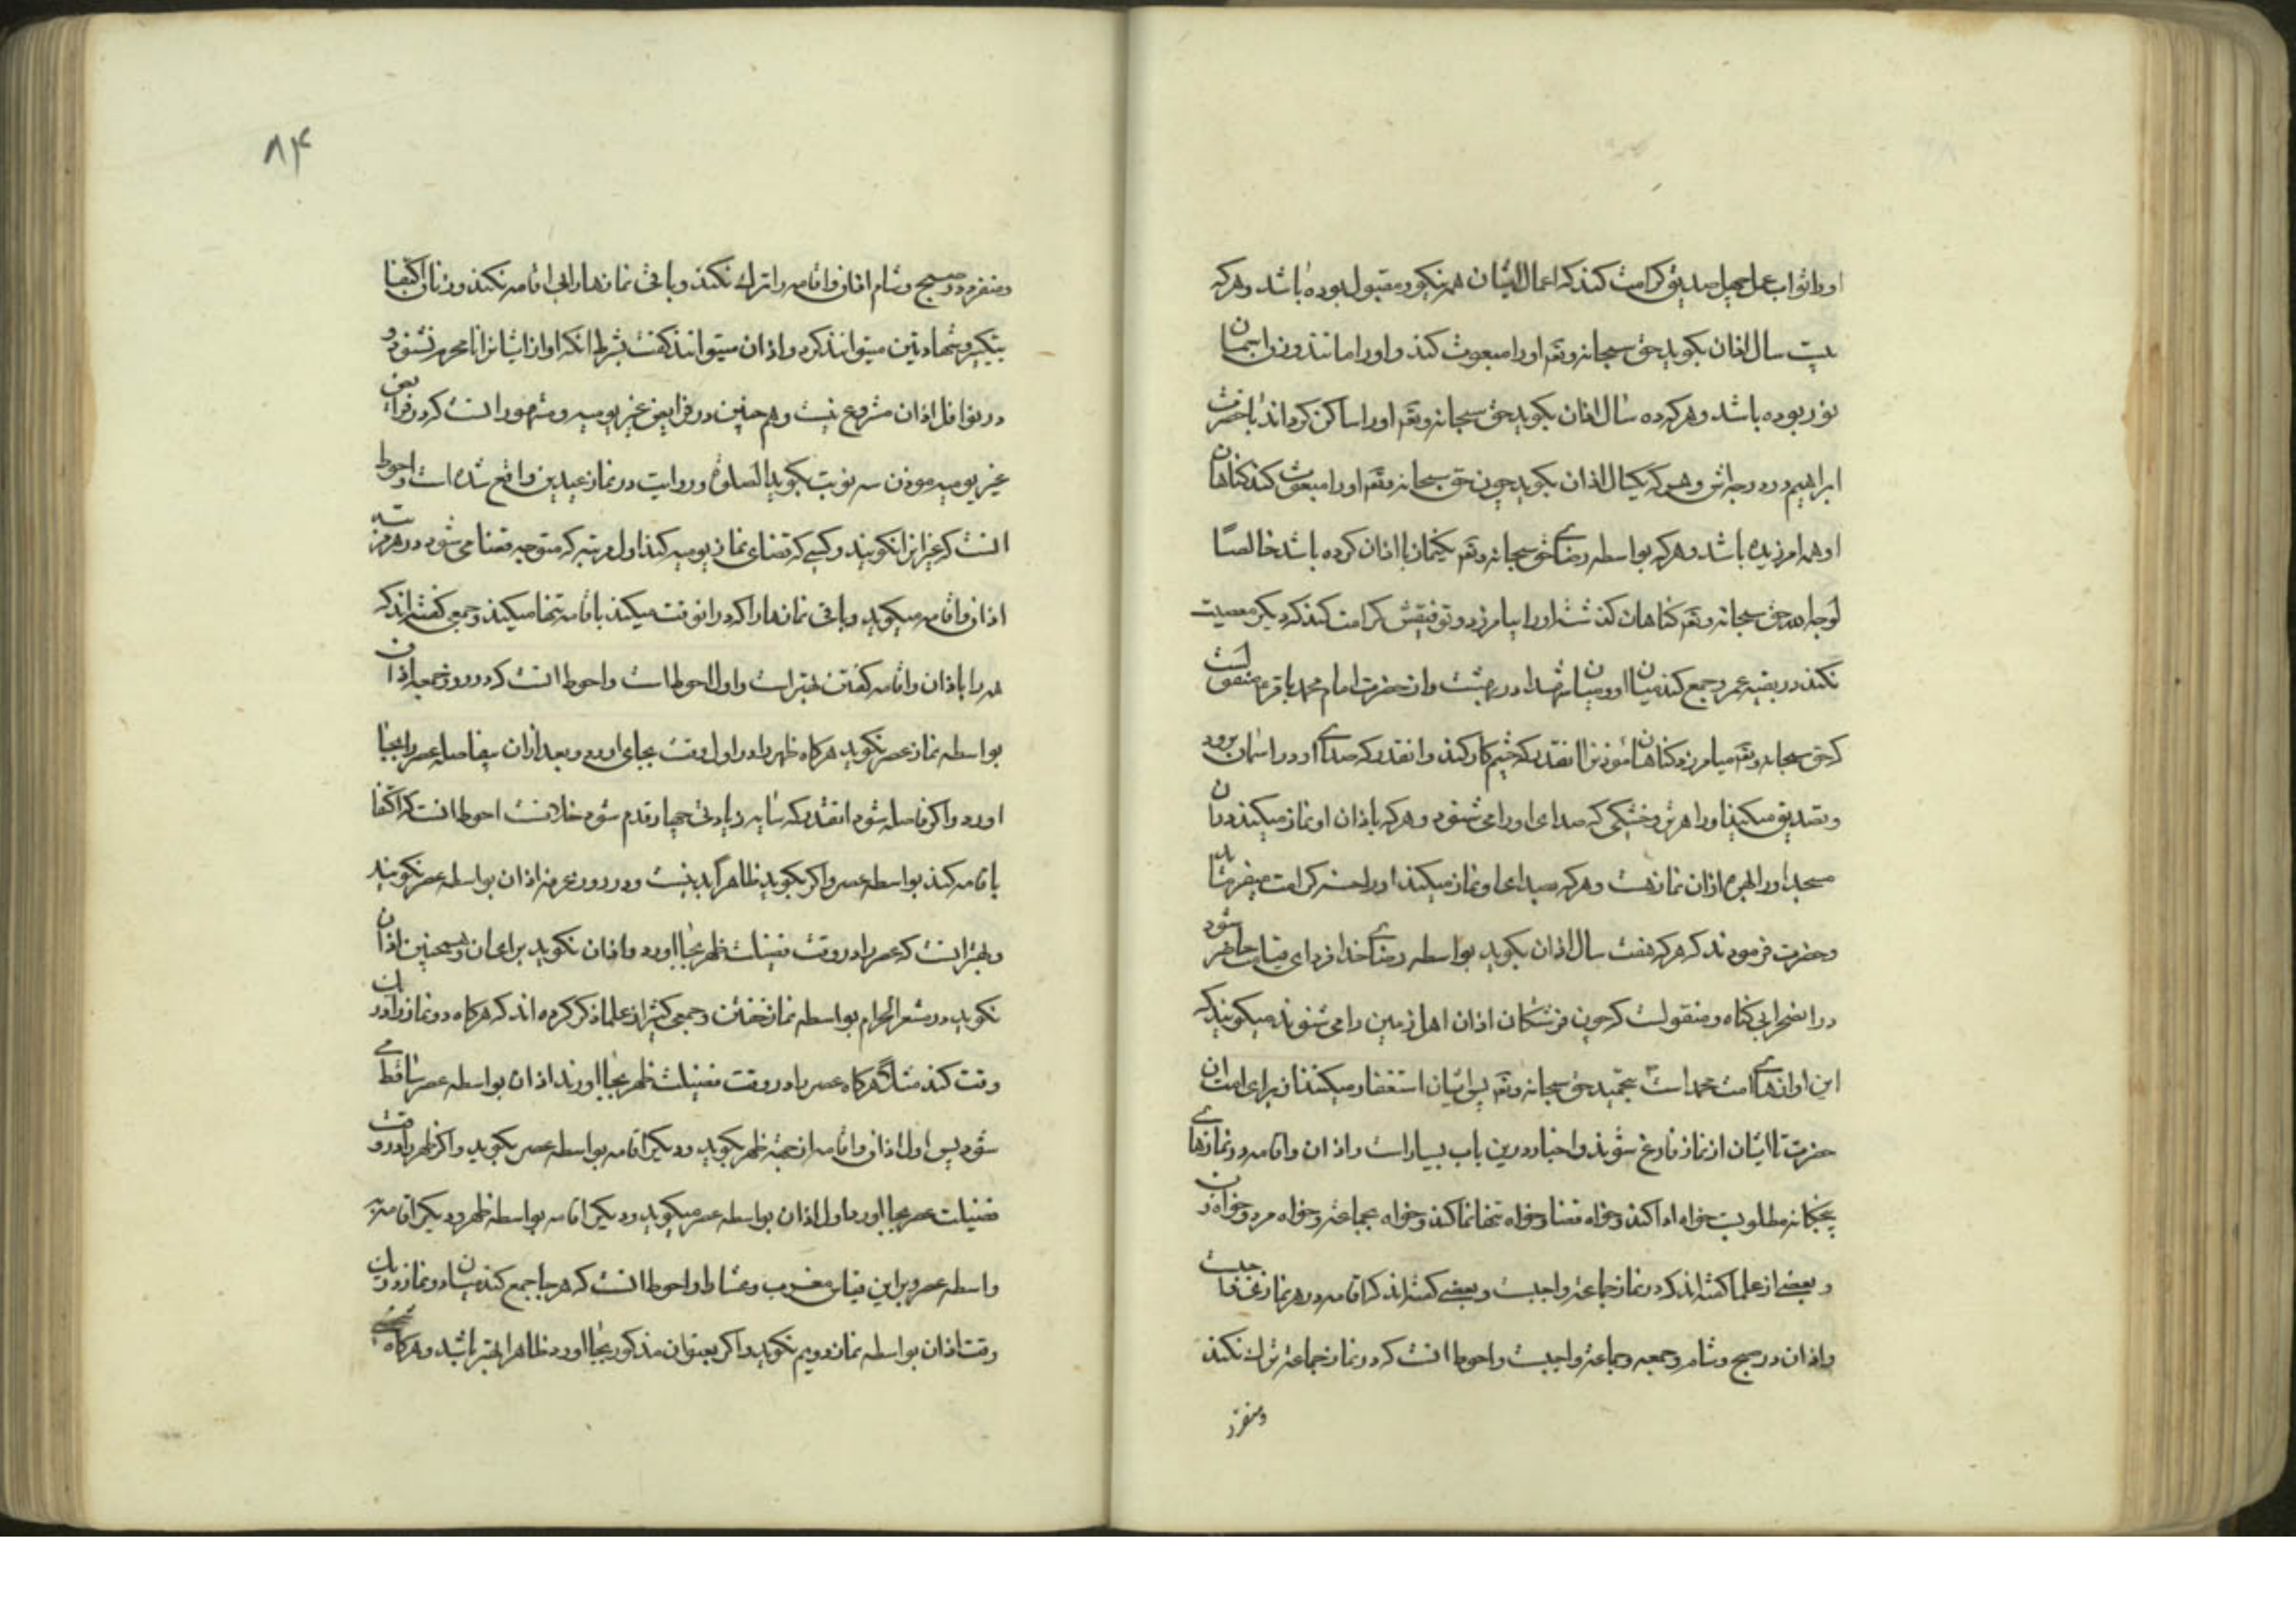 او را ثواب عمل چهل صدیق کرامت کند که اعمال ایشان همه نیکو و مقبول بوده باشد و هر که
بیست سال اذان بکوید حق سبحانه و تعه او را مبعوث کند و او را مانند وزن اسمان
نور بوده باشد و هر که ده سال اذان بکوید حق سبحانه و تعه او را ساکن کرداند با حضرت
ابراهیم در درجه‌اش و هر که یکسال اذان بکوید چون حق سبحانه و تعه او را مبعوث کند کناهان
او همه امرزیده باشد و هر که بواسطه رضای حق سبحانه و تعه یکنماز با اذان کرده باشد خالصًا
لوجه الله حق سبحانه و تعه کناهان کذشته او را بیامرزد و توفیقش کرامت کند که دیکر معصیت
نکند در بقیه عمر و جمع کند میان او و میان شهدا در بهشت و از حضرت امام محمد باقر ع منقولست
که حق سبحانه و تعه میامرزد کناهان مؤذنرا انقدر که چشم کار کند و انقدر که صدای او در اسمان برود
و تصدیق میکنید او را هر تر و خشکی که صدای او را می شنود و هر که باذان او نماز میکند در ان
مسجد او را بهره از ان نماز هست و هر که بصدای او نماز میکند او را حسنه کرامت میفرماید
و حضرت فرمودند که هر که هفت سال اذان بکوید بواسطه رضای خدا فردای قیامت حاضر شود
در انصحرا بی کناه و منقولست که چون فرشتکان اذان اهل زمین را می شنوند میکویند که
این اوازهای امت محمد است بتحمید حق سبحانه و تعه پس ایشان استغفار میکنند از برای امت ان
حضرت تا ایشان از نماز فارغ شوند و اخبار درین باب بسیار است و اذان و اقامه در نمازهای
پنجکانه مطلوبست خواه ادا کند و خواه قضا و خواه تنها نماز کند و خواه بجماعة و خواه مرد و خواه زن
و بعضی از علما کفته‌اند که در نماز جماعة واجبست و بعضی کفته‌اند که اقامه در هر نماز
و اذان در صبح و شام و جمعه و جماعة واجبست و احوط انست که در نماز جماعة ترک نکند
و منفرد
۸۴
و منفرد در صبح و شام اذان و اقامه را ترک نکند و باقی نمازها را بی اقامه نکند و زنان اکتفا
بتکبیر و شهادتین میتوانند کرد و اذان میتوانند کفت بشرط انکه اواز ایشانرا نامحرم نشنود و
در نوافل اذان مشروع نیست و هم چنین در فرایض غیر یومیه و مشهور انست که در فرایض
غیر یومیه موذن سه نوبت بکوید الصلوة و روایت در نماز عیدین واقع شده است و احوط
انست که غیر انرا نکویند و کسی که قضای نماز یومیه کند اول مرتبه که متوجه قضا می شود در هر مرتبه
اذان و اقامه میکوید و باقی نمازها را که در انوقت میکند باقامه تنها میکند و جمعی کفته‌اند که
همه را باذان و اقامه کفتن بهتر است و اول احوط است و احوط انست که در روز جمعه اذان
بواسطه نماز عصر نکوید هر کاه ظهر را در اول وقت بجای اورد و بعد از ان بیفاصله عصر را بجا
اورد و اکر فاصله شود انقدر که سایه زیادتی چهار قدم شود خلافست احوط انست که اکتفا
باقامه کند بواسطه عصر و اکر بکوید ظاهرًا بد نیست و در روز عرفه اذان بواسطه عصر نکویند
و بهتر انست که عصر را در وقت فضیلت ظهر بجا اورد و اذان نکوید برای ان و همچنین اذان
نکوید در مشعر الحرام بواسطه نماز خفتن و جمعی کثیر از علما ذکر کرده اند که هر کاه دو نماز را در ان
وقت کند مثلًا هر کاه عصر را در وقت فضیلت ظهر بجا اورند اذان بواسطه عصر ساقط می
شود پس اول اذان و اقامه از جهة ظهر بکوید و دیکر اقامه بواسطه عصر بکوید و اکر ظهر را در وقت
فضیلت عصر بجا اورد اول اذان بواسطه عصر میکوید و دیکر اقامه بواسطه ظهر و دیکر اقامه
واسطه عصر و براین قیاس مغرب و عشا را و احوط انست که هر جا جمع کند میان دو نماز در یک
وقت اذان بواسطه نماز دویم نکوید و اکر بعنوان مذکور بجا اورد ظاهرا بهتر باشد و هر کاه